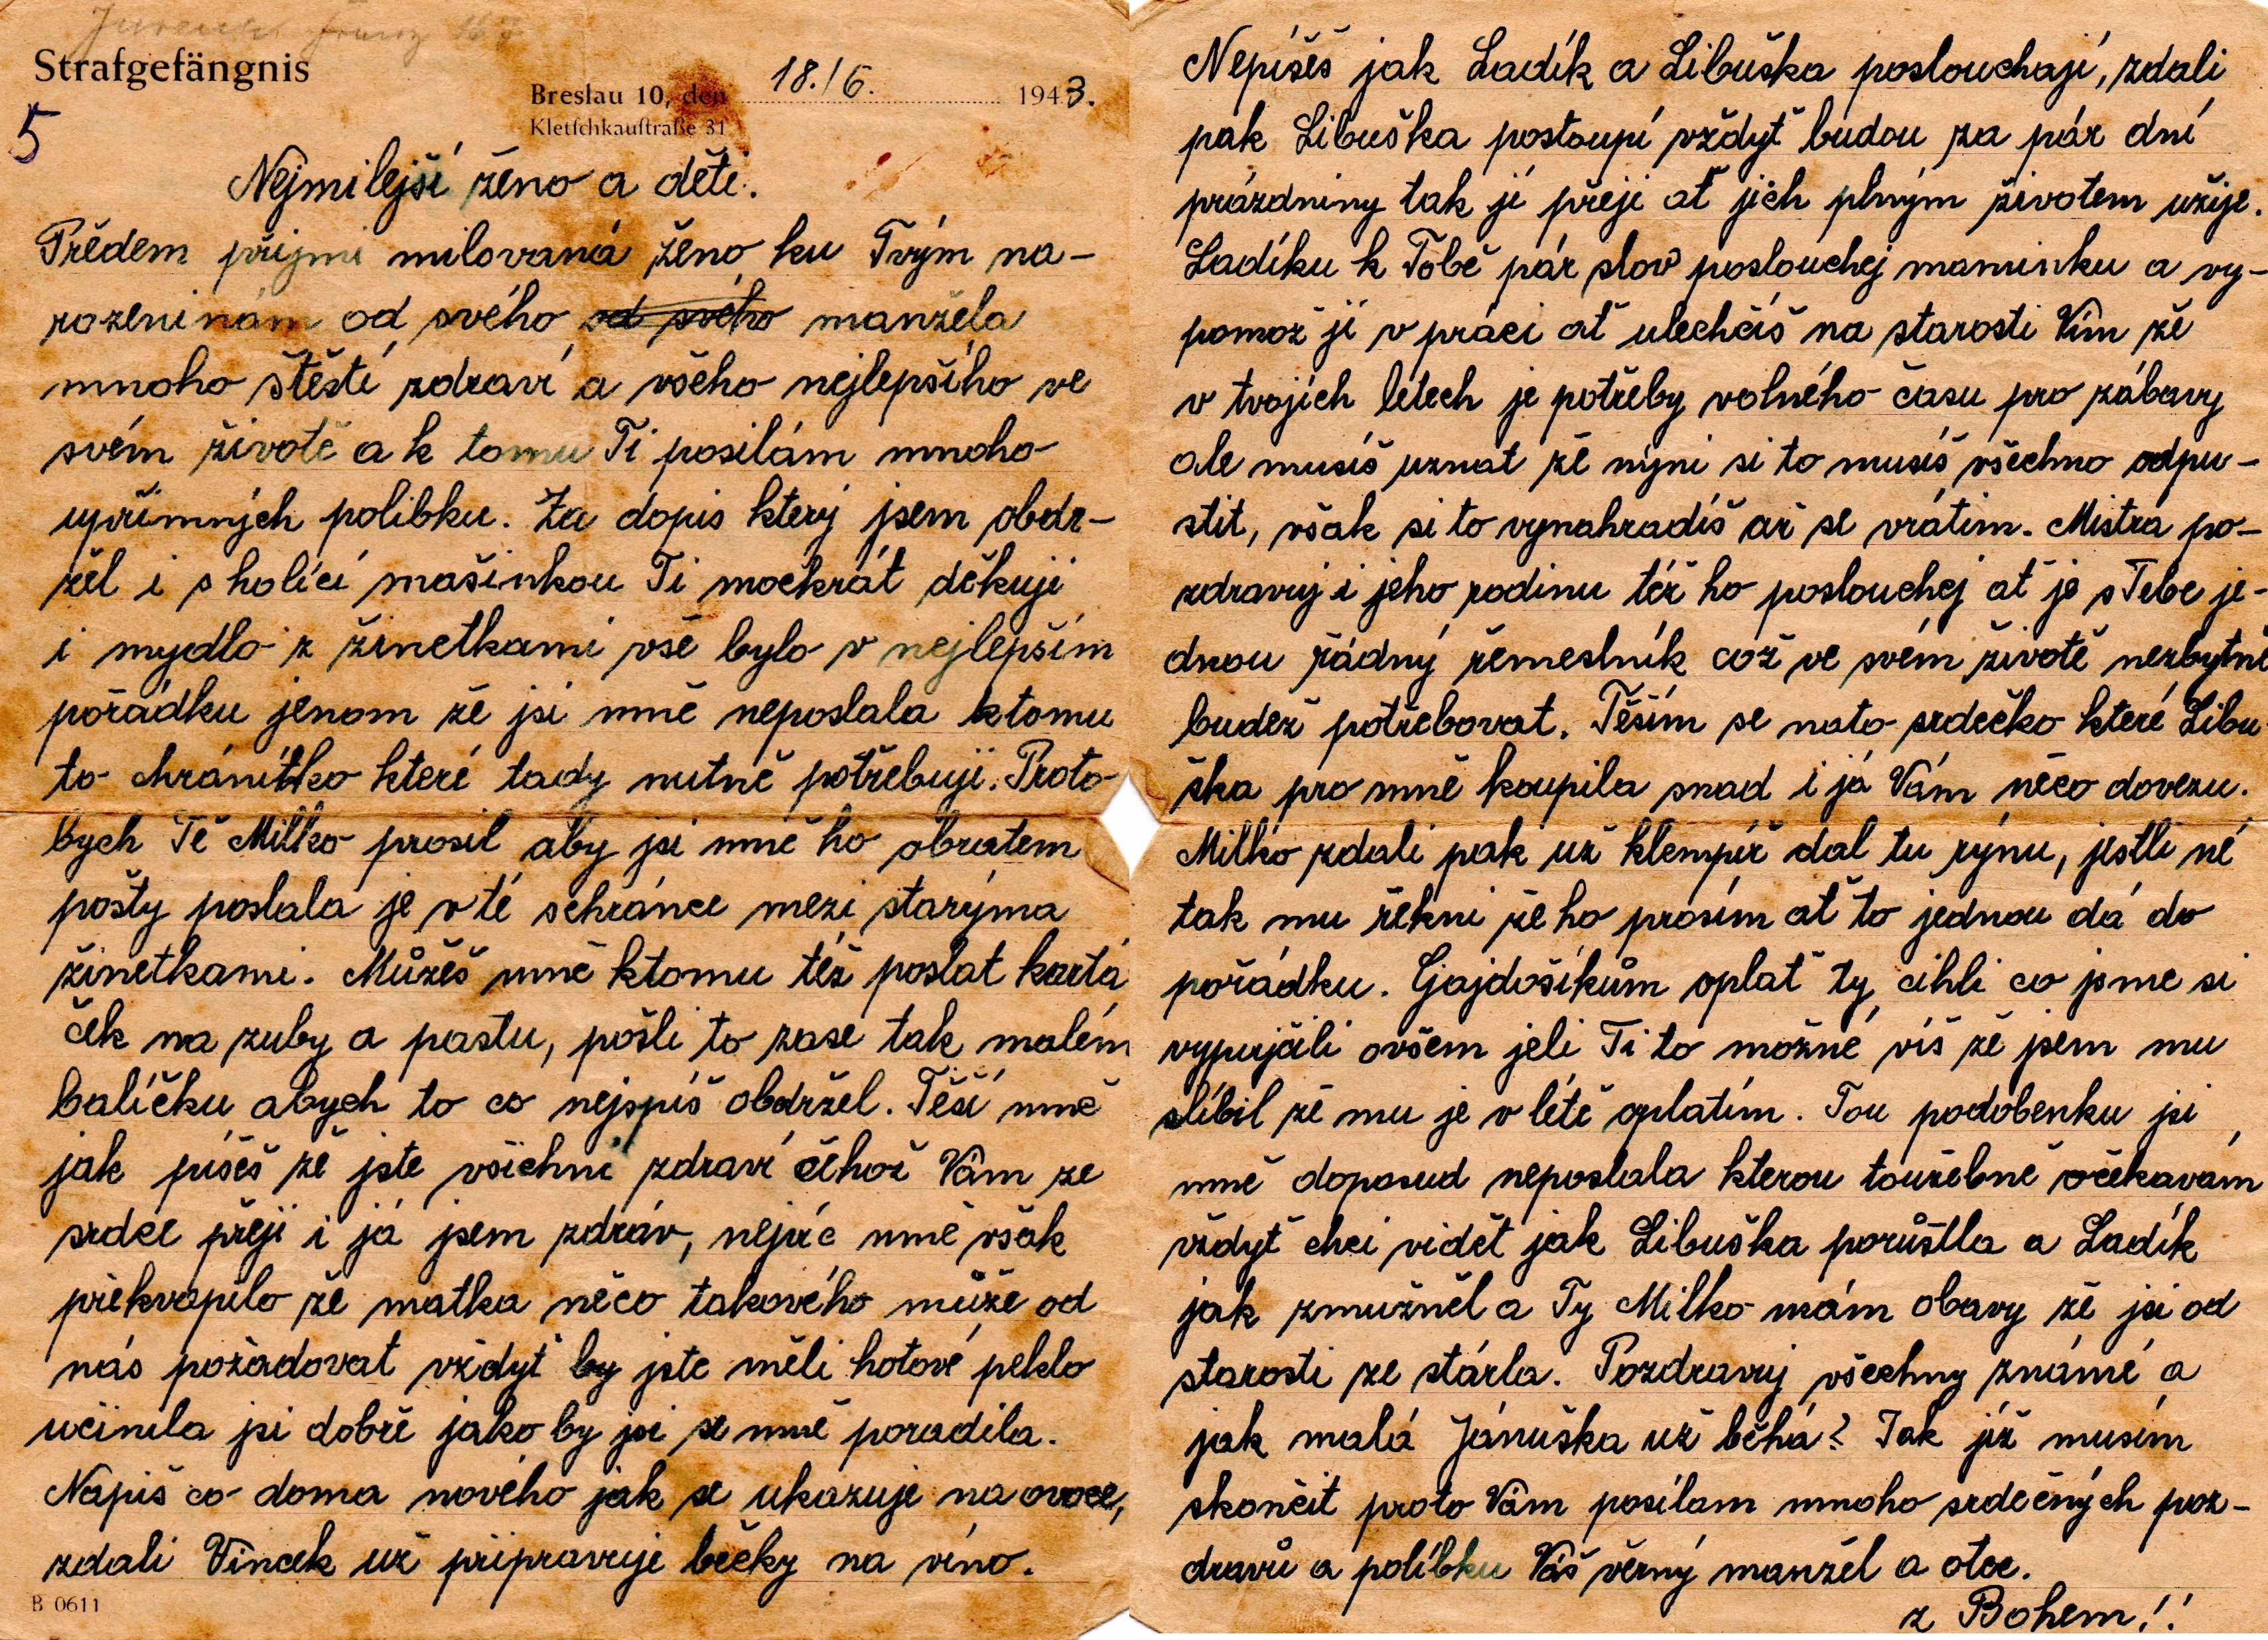 Strafgefängnis
Breslau 10, den 18./6. 1943.
Kletschkaustraße 31
5
Nejmilejší ženo a děti.
Předem přijmi milovaná ženo ku Tvým na-
rozeninám od svého od svého manžela
mnoho štěstí zdraví a všeho nejlepšího ve
svém životě a k tomu Ti posílám mnoho
upřímných polibku. Za dopis který jsem obdr-
žel i s holící mašinkou Ti mockrát děkuji
i mydlo z žinetkami vše bylo v nejlepším
pořádku jenom že jsi mně neposlala ktomu
to chránítko které tady nutně potřebuji. Proto
bych Tě Milko prosil aby jsi mně ho obratem
pošty poslala je v té schránce mezi starýma
žinetkami. Můžěš mně ktomu též poslat kartá
ček na zuby a pastu, pošli to zase tak malém
balíčku abych to co nejspíš obdržel. Těší mně
jak píšěš že jste všichni zdraví čehož Vám ze
srdce přeji i já jsem zdráv, nejvíc mně však
překvapilo že matka něco takového může od
nás požadovat vždyť by jste měli hotové peklo
učinila jsi dobře jako by jsi se mně poradila.
Napiš co doma nového jak se ukazuje na ovoce,
zdali Vincek už připravuje bečky na víno.
B 0611
Nepíšěš jak Ladík a Libuška poslouchají, zdali
pak Libuška postoupí vždyť budou za pár dní
prázdniny tak jí přeji ať jich plným životem užije.
Ladíku k Tobě pár slov poslouchej maminku a vy-
pomož jí v práci ať ulechčíš na starosti Vím že
v tvojích létech je potřeby volného času pro zábavy
ale musíš uznat že nýni si to musíš všechno odpu-
stit, však si to vynahradíš až se vrátím. Mistra po-
zdravuj i jeho rodinu též ho poslouchej ať je s Tebe je-
dnou řádný řemeslník což ve svém životě nezbytně
budež potřebovat. Těším se nato srdečko které Libu
ška pro mně koupila snad i já Vám něco dovezu.
Milko zdali pak už klempíř dal tu rýnu, jestli né
tak mu řekni že ho prosím ať to jednou dá do
pořádku. Gajdošíkům oplať ty cihli co jsme si
vypujčili ovšem jeli Ti to možné víš že jsem mu
slíbil že mu je v létě oplatím. Tou podobenku jsi
mně doposud neposlala kterou toužebně očekavám
vždyť chci vidět jak Libuška porůstla a Ladík
jak zmužněl a Ty Milko mám obavy že jsi od
starosti ze stárla. Pozdravuj všechny známé a
jak malá Jánuška už běhá? Tak již musím
skončit proto Vám posílam mnoho srdečných poz-
dravů a polibku Váš věrný manžel a otec.
z Bohem!!